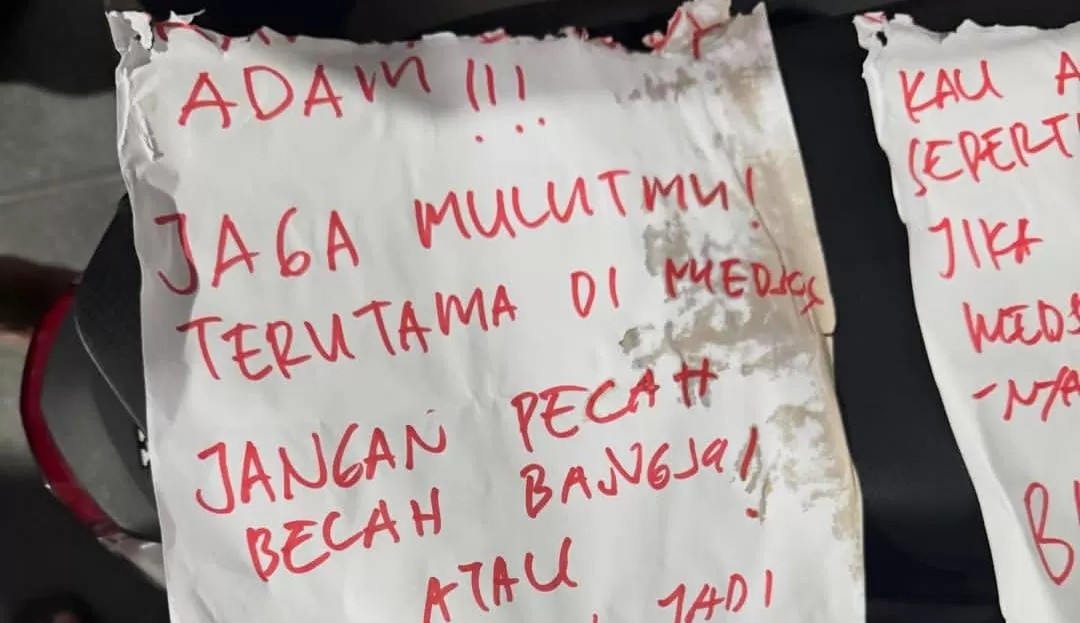 ADAM !!!
JAGA MULUTMU!
TERUTAMA DI MEDSOS
JANGAN PECAH
BECAH BANGSA!
ATAU
JADI
KAU A
SEPERTI
JIKA
MEDS
-NYA